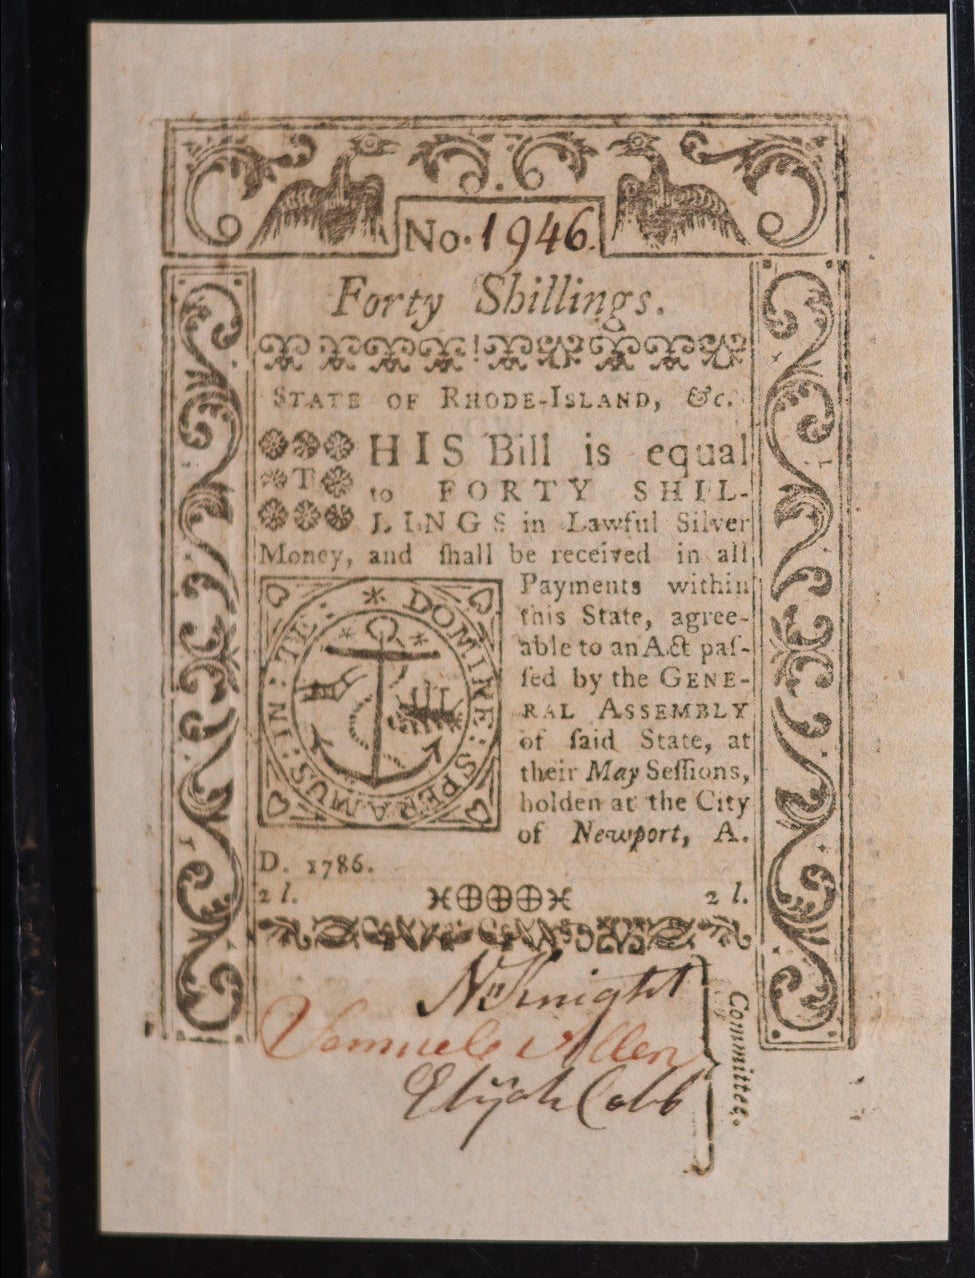 No. 1946.
Forty Shillings.
STATE OF RHODE-ISLAND, &c.
THIS Bill is equal
to FORTY SHIL-
LINGS in Lawful Silver
Money, and ſhall be received in all
Payments within
this State, agree-
able to an Act paſ-
ſed by the GENE-
RAL ASSEMBLY
of ſaid State, at
their May Seſſions,
holden at the City
of Newport, A.
D. 1786.
IN : TE : * DOMINE : SPERAMUS :
2 l. 2 l.
N Knight
Samuel Allen
Elijah Cobb
Committee.